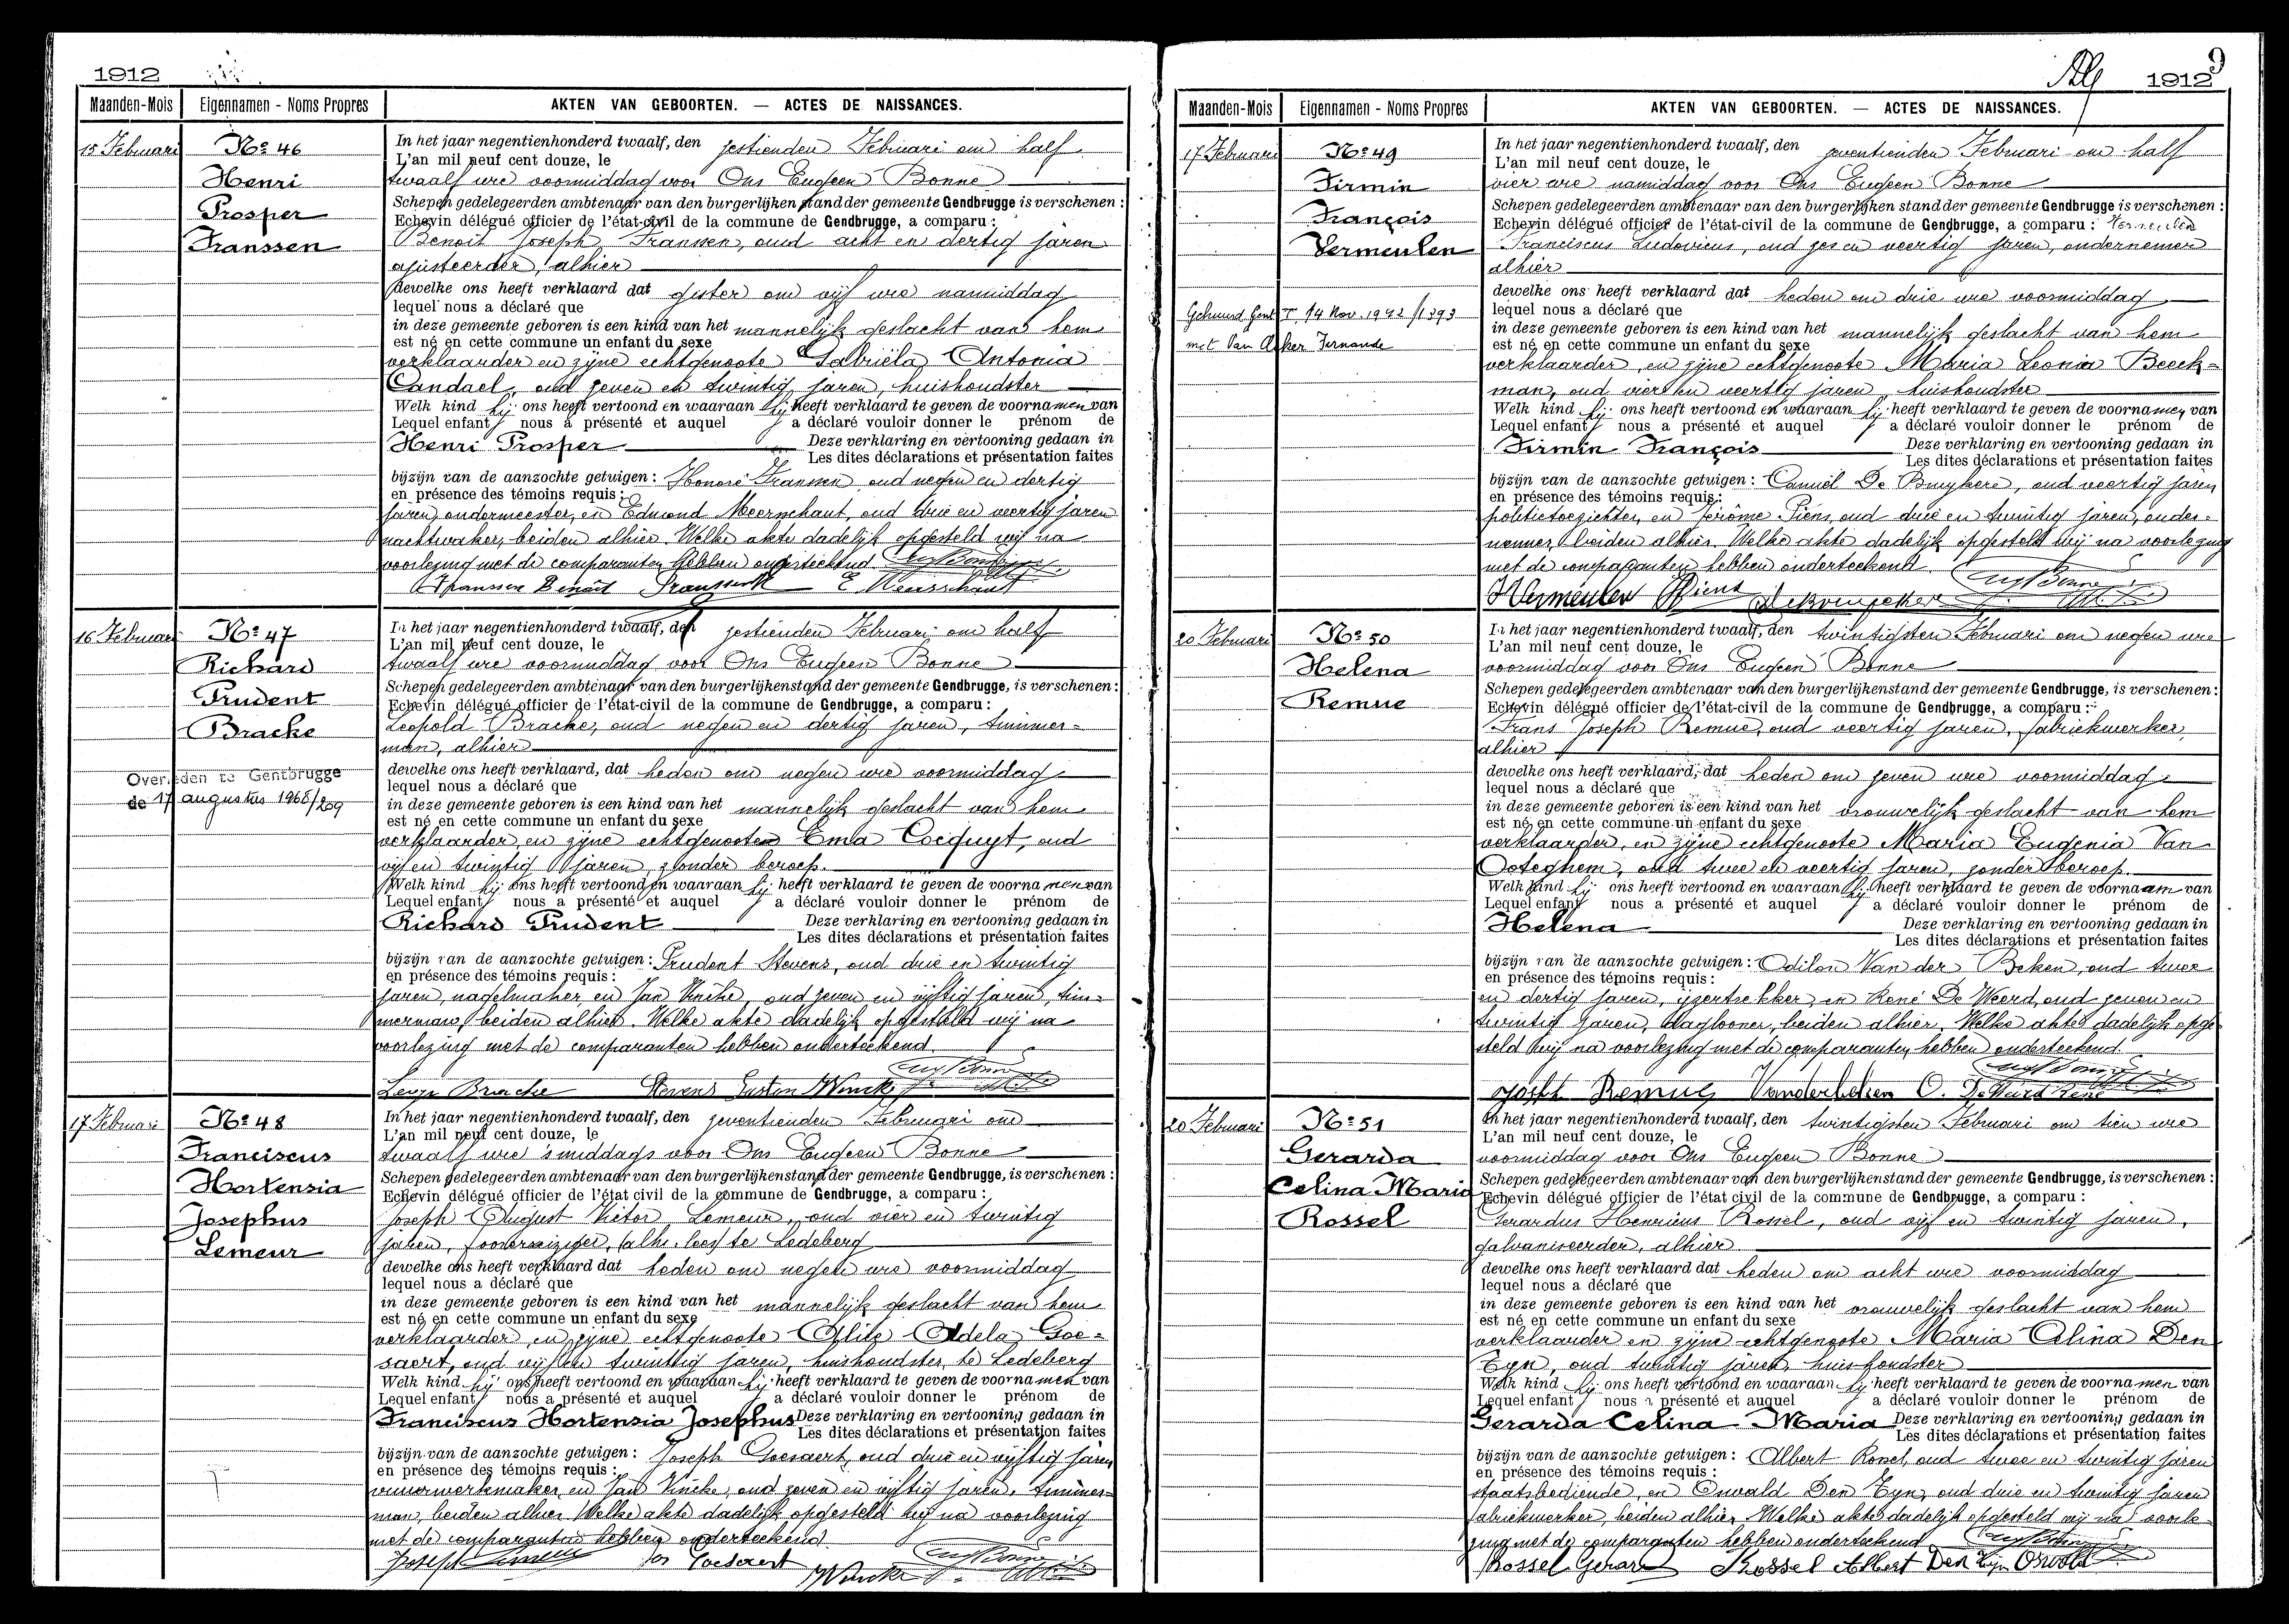 1912
Maanden-Mois Eigennamen - Noms Propres AKTEN VAN GEBOORTEN. — ACTES DE NAISSANCES.
15 Februari
No 46
Henri
Prosper
Franssen
In het jaar negentienhonderd twaalf, den zestienden Februari om half
L'an mil neuf cent douze, le
twaalf ure voormiddag voor Ons Eugeen Bonne
Schepen gedelegeerden ambtenaar van den burgerlijken stand der gemeente Gendbrugge is verschenen :
Echevin délégué officier de l'état-civil de la commune de Gendbrugge, a comparu :
Benoit Joseph Franssen, oud acht en dertig jaren
ajusteerder, alhier
dewelke ons heeft verklaard dat gister om vijf ure namiddag
lequel nous a déclaré que
in deze gemeente geboren is een kind van het mannelijk geslacht van hem
est né en cette commune un enfant du sexe
verklaarder en zijne echtgenoote Gabriëla Antonia
Candael, oud zeven en twintig jaren, huishoudster
Welk kind hij ons heeft vertoond en waaraan hij heeft verklaard te geven de voornamen van
Lequel enfant nous a présenté et auquel a déclaré vouloir donner le prénom de
Henri Prosper Deze verklaring en vertooning gedaan in
Les dites déclarations et présentation faites
bijzijn van de aanzochte getuigen : Honoré Franssen oud negen en dertig
en présence des témoins requis :
jaren, ondermeester, en Edmond Meerschaut, oud drie en veertig jaren
nachtwaker, beiden alhier. Welke akte dadelijk opgesteld wij na
voorlezing met de comparanten hebben onderteekend.
Franssen Benoit Franssen E Meerschaut
16 Februari
No 47
Richard
Prudent
Bracke
Overleden te Gentbrugge
de 17 augustus 1968/209
In het jaar negentienhonderd twaalf, den zestienden Februari om half
L'an mil neuf cent douze, le
twaalf ure voormiddag voor Ons Eugeen Bonne
Schepen gedelegeerden ambtenaar van den burgerlijkenstand der gemeente Gendbrugge, is verschenen :
Echevin délégué officier de l'état-civil de la commune de Gendbrugge, a comparu :
Leopold Bracke, oud negen en dertig jaren, timmer=
man, alhier
dewelke ons heeft verklaard, dat heden om negen ure voormiddag
lequel nous a déclaré que
in deze gemeente geboren is een kind van het mannelijk geslacht van hem
est né en cette commune un enfant du sexe
verklaarder en zijne echtgenoote Ema Cocquyt, oud
vijf en twintig jaren, zonder beroep.
Welk kind hij ons heeft vertoond en waaraan hij heeft verklaard te geven de voornamen van
Lequel enfant nous a présenté et auquel a déclaré vouloir donner le prénom de
Richard Prudent Deze verklaring en vertooning gedaan in
Les dites déclarations et présentation faites
bijzijn van de aanzochte getuigen : Prudent Stevens, oud drie en twintig
en présence des témoins requis :
jaren, nagelmaker en Jan Vincke, oud zeven en vijftig jaren, tim=
merman, beiden alhier. Welke akte dadelijk opgesteld wij na
voorlezing met de comparanten hebben onderteekend
Bracke Stevens J Vincke
17 Februari
No 48
Franciscus
Hortensia
Josephus
Lemeur
In het jaar negentienhonderd twaalf, den zeventienden Februari om
L'an mil neuf cent douze, le
twaalf ure 's middags voor Ons Eugeen Bonne
Schepen gedelegeerden ambtenaar van den burgerlijkenstand der gemeente Gendbrugge, is verschenen :
Echevin délégué officier de l'état civil de la commune de Gendbrugge, a comparu :
Joseph August Victor Lemeur, oud vier en twintig
jaren, te Ledeberg
dewelke ons heeft verklaard dat heden om negen ure voormiddag
lequel nous a déclaré que
in deze gemeente geboren is een kind van het mannelijk geslacht van hem
est né en cette commune un enfant du sexe
verklaarder en zijne echtgenoote Adela Goe=
saert, oud vijf en twintig jaren, huishoudster, te Ledeberg
Welk kind hij ons heeft vertoond en waaraan hij heeft verklaard te geven de voornamen van
Lequel enfant nous a présenté et auquel a déclaré vouloir donner le prénom de
Franciscus Hortensia Josephus Deze verklaring en vertooning gedaan in
Les dites déclarations et présentation faites
bijzijn van de aanzochte getuigen : Joseph Goesaert, oud drie en vijftig jaren
en présence des témoins requis :
vuurwerkmaker, en Jan Vincke, oud zeven en vijftig jaren, timmer=
man, beiden alhier. Welke akte dadelijk opgesteld wij na voorlezing
met de comparanten hebben onderteekend
Joseph Lemeur Jos Goesaert J Vincke
9
1912
Maanden-Mois Eigennamen - Noms Propres AKTEN VAN GEBOORTEN. — ACTES DE NAISSANCES.
17 Februari
No 49
Firmin
François
Vermeulen
Gehuwd Gent I, 14 Nov. 1942 /1393
met Van Acker Fernande
In het jaar negentienhonderd twaalf, den zeventienden Februari om half
L'an mil neuf cent douze, le
vier ure namiddag voor Ons Eugeen Bonne
Schepen gedelegeerden ambtenaar van den burgerlijken stand der gemeente Gendbrugge is verschenen :
Echevin délégué officier de l'état-civil de la commune de Gendbrugge, a comparu : Vermeulen
Franciscus Ludovicus, oud zes en veertig jaren, ondernemer
alhier
dewelke ons heeft verklaard dat heden om drie ure voormiddag
lequel nous a déclaré que
in deze gemeente geboren is een kind van het mannelijk geslacht van hem
est né en cette commune un enfant du sexe
verklaarder, en zijne echtgenoote Maria Leonia Beeck=
man, oud vier en veertig jaren, huishoudster
Welk kind hij ons heeft vertoond en waaraan hij heeft verklaard te geven de voornamen van
Lequel enfant nous a présenté et auquel a déclaré vouloir donner le prénom de
Firmin François Deze verklaring en vertooning gedaan in
Les dites déclarations et présentation faites
bijzijn van de aanzochte getuigen : Camiel De Bruykere, oud veertig jaren
en présence des témoins requis :
politietoezichter, en Jérôme Piens, oud drie en twintig jaren, onder=
nemer, beiden alhier. Welke akte dadelijk opgesteld wij na voorlezing
met de comparanten hebben onderteekend.
Vermeulen Piens
20 Februari
No 50
Helena
Remue
In het jaar negentienhonderd twaalf, den twintigsten Februari om negen ure
L'an mil neuf cent douze, le
voormiddag voor Ons Eugeen Bonne
Schepen gedelegeerden ambtenaar van den burgerlijkenstand der gemeente Gendbrugge, is verschenen :
Echevin délégué officier de l'état-civil de la commune de Gendbrugge, a comparu :
Frans Joseph Remue, oud veertig jaren, fabriekwerker,
alhier
dewelke ons heeft verklaard, dat heden om zeven ure voormiddag
lequel nous a déclaré que
in deze gemeente geboren is een kind van het vrouwelijk geslacht van hem
est né en cette commune un enfant du sexe
verklaarder, en zijne echtgenoote Maria Eugenia Van
Ooteghem, oud twee en veertig jaren, zonder beroep
Welk kind hij ons heeft vertoond en waaraan hij heeft verklaard te geven de voornaam van
Lequel enfant nous a présenté et auquel a déclaré vouloir donner le prénom de
Helena Deze verklaring en vertooning gedaan in
Les dites déclarations et présentation faites
bijzijn van de aanzochte getuigen : Odilon Van der Beken, oud twee
en présence des témoins requis :
en dertig jaren, ijzertrekker, en René De Weerd, oud zeven en
twintig jaren, daglooner, beiden alhier. Welke akte dadelijk opge
steld wij na voorlezing met de comparanten hebben onderteekend.
Joseph Remue Vanderbeken O. De Weird René
20 Februari
No 51
Gerarda
Celina Maria
Rossel
In het jaar negentienhonderd twaalf, den twintigsten Februari om tien ure
L'an mil neuf cent douze, le
voormiddag voor Ons Eugeen Bonne
Schepen gedelegeerden ambtenaar van den burgerlijkenstand der gemeente Gendbrugge, is verschenen :
Echevin délégué officier de l'état civil de la commune de Gendbrugge, a comparu :
Gerardus Henricus Rossel, oud vijf en twintig jaren,
galvaniseerder, alhier
dewelke ons heeft verklaard dat heden om acht ure voormiddag
lequel nous a déclaré que
in deze gemeente geboren is een kind van het vrouwelijk geslacht van hem
est né en cette commune un enfant du sexe
verklaarder en zijne echtgenoote Maria Celina Den
Tyn, oud twintig jaren, huishoudster
Welk kind hij ons heeft vertoond en waaraan hij heeft verklaard te geven de voornamen van
Lequel enfant nous a présenté et auquel a déclaré vouloir donner le prénom de
Gerarda Celina Maria Deze verklaring en vertooning gedaan in
Les dites déclarations et présentation faites
bijzijn van de aanzochte getuigen : Albert Rossel, oud twee en twintig jaren
en présence des témoins requis :
staatsbediende, en Oswald Den Tyn, oud drie en twintig jaren
fabriekwerker, beiden alhier. Welke akte dadelijk opgesteld wij na voorle=
zing met de comparanten hebben onderteekend
Rossel Gerard Rossel Albert Den Tyn Oswald